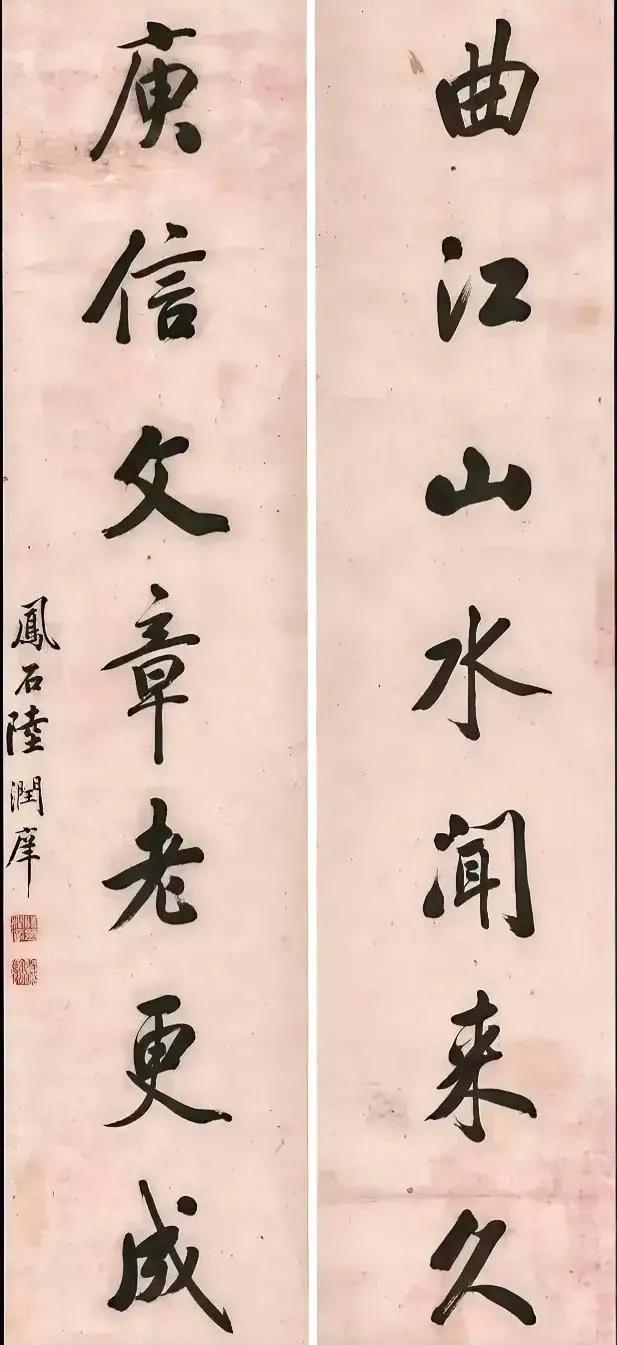 曲江山水闻来久
庾信文章老更成
鳳石陸潤庠